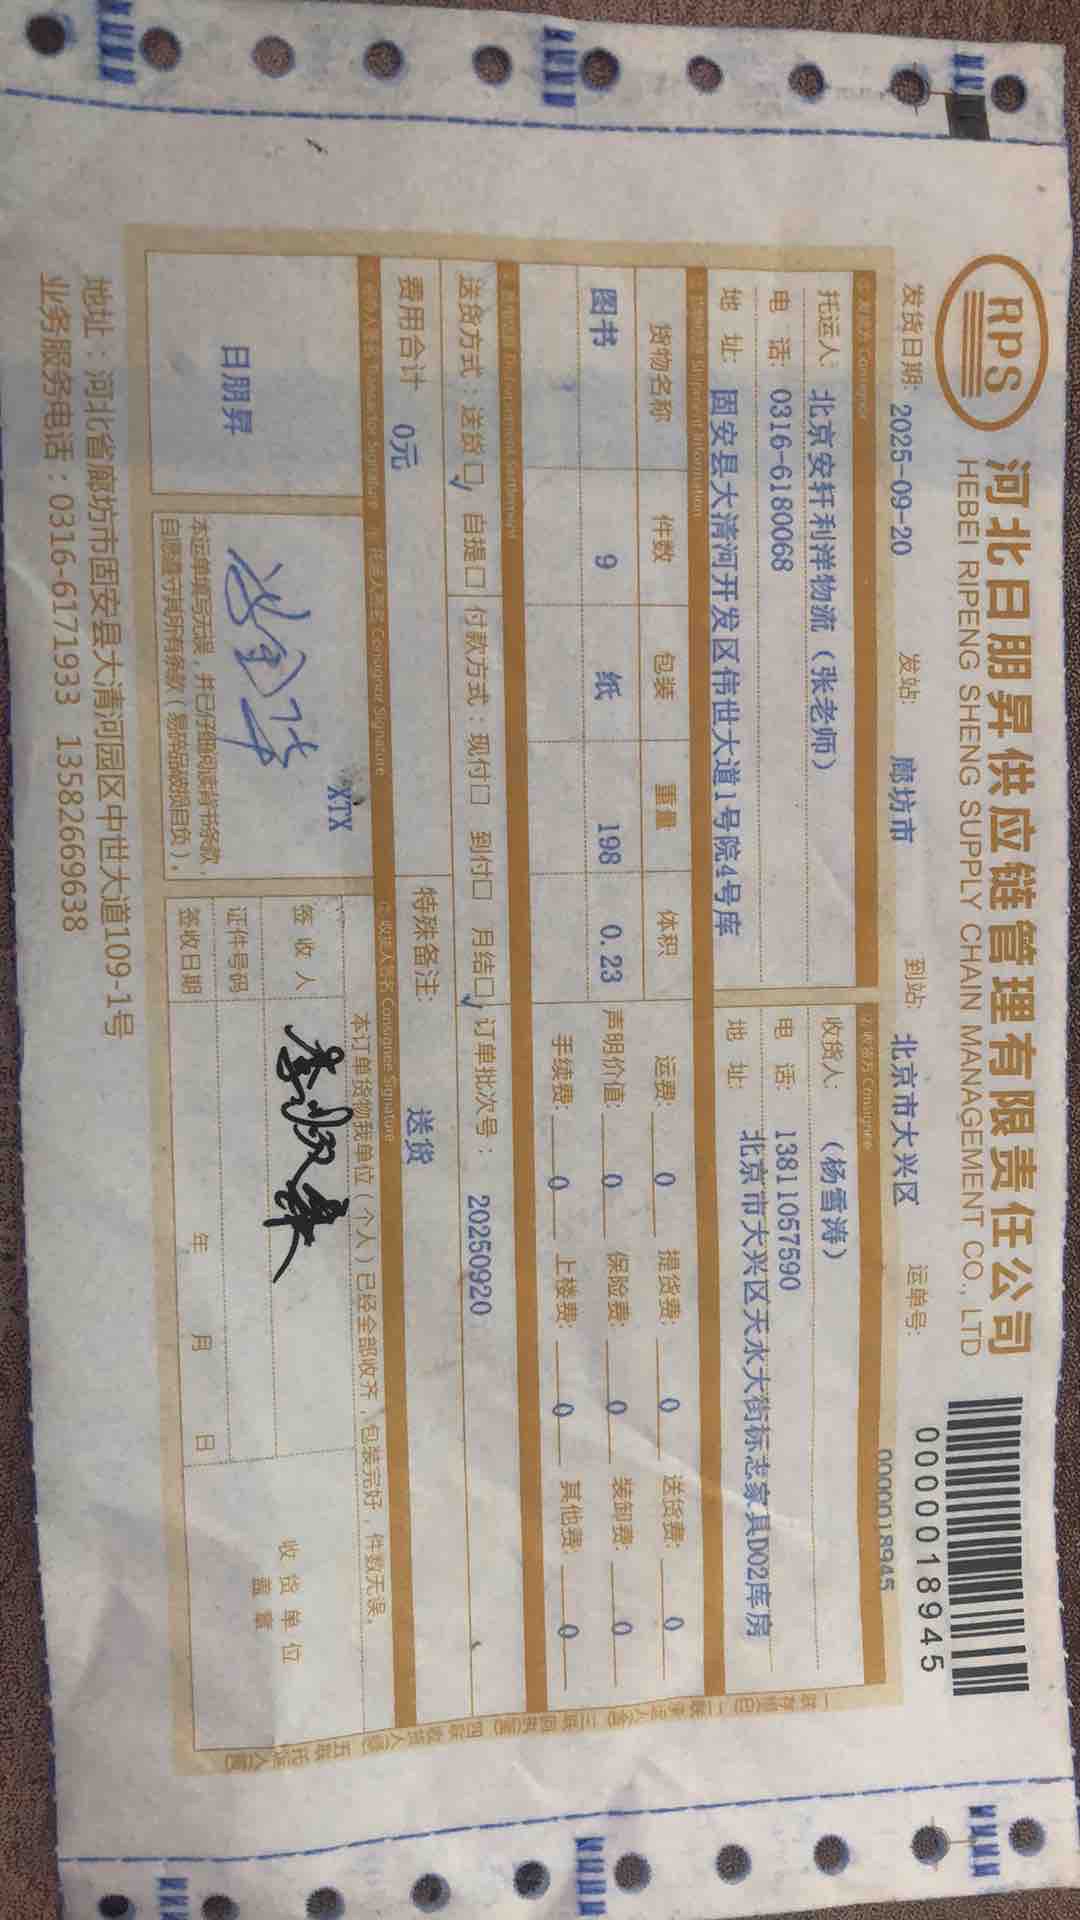 RPS
河北日朋昇供应链管理有限责任公司
HEBEI RIPENG SHENG SUPPLY CHAIN MANAGEMENT CO., LTD
0000018945
发货日期: 2025-09-20 发站: 廊坊市 到站: 北京市大兴区 运单号: 0000018945
托运人: 北京安轩利洋物流（张老师）
电 话: 0316-6180068
地 址: 固安县大清河开发区伟世大道1号院4号库
收货方 Consignee
收货人: （杨雪涛）
电 话: 13811057590
地 址: 北京市大兴区天水大街标志家具D02库房
Shipment Information
货物名称 件数 包装 重量 体积
图书 9 纸 198 0.23
运费: 0 提货费: 0 送货费: 0
声明价值: 0 保险费: 0 装卸费: 0
手续费: 0 上楼费: 0 其他费: 0
送货方式：送货口 自提口 付款方式：现付口 到付口 月结口 订单批次号： 20250920
费用合计 0元 特殊备注: 送货
Consignor Signature
收货人签名 Consignee Signature
日朋昇
XTX
本运单填写无误，并已仔细阅读背书条款，
自愿遵守其所有条款（易碎品破损自负）。
本订单货物我单位（个人）已经全部收齐，包装完好，件数无误。
签 收 人
证件号码
签收日期 年 月 日
收 货 单 位
盖 章
地址：河北省廊坊市固安县大清河园区中世大道109-1号
业务服务电话：0316-6171933 13582669638